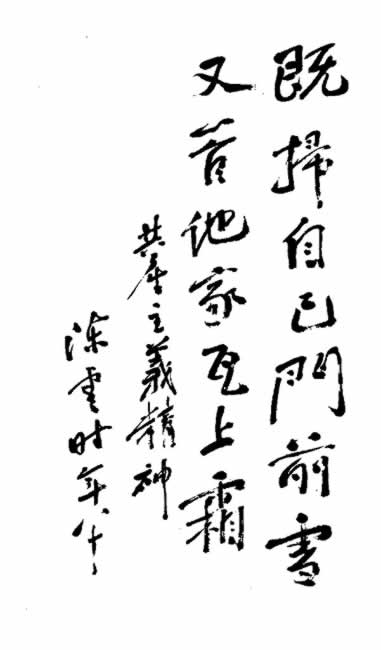 既掃自己門前雪
又管他家瓦上霜
共產主義精神
陳雲时年八十